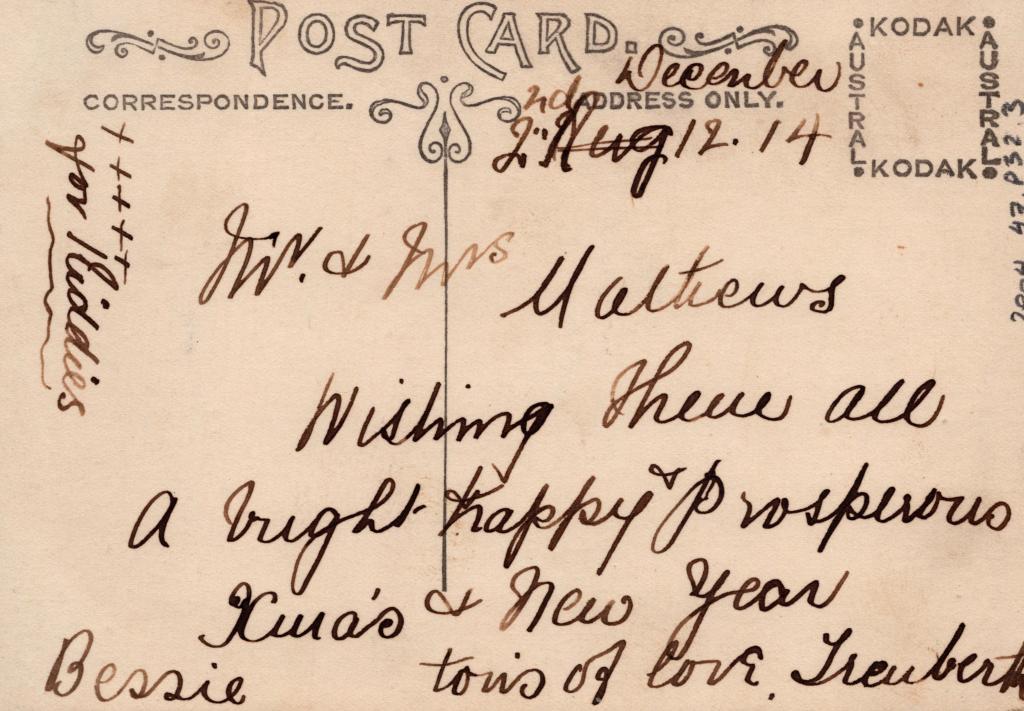 POST CARD.
CORRESPONDENCE.
ADDRESS ONLY.
KODAK
AUSTRAL
AUSTRAL
KODAK
December
2nd
2" Aug 12. 14
+++++
for Kiddies
Mr. & Mrs
Mathews
Wishing Theme all
A bright happy & Prosperous
Xmas & New Year
Bessie tons of love.